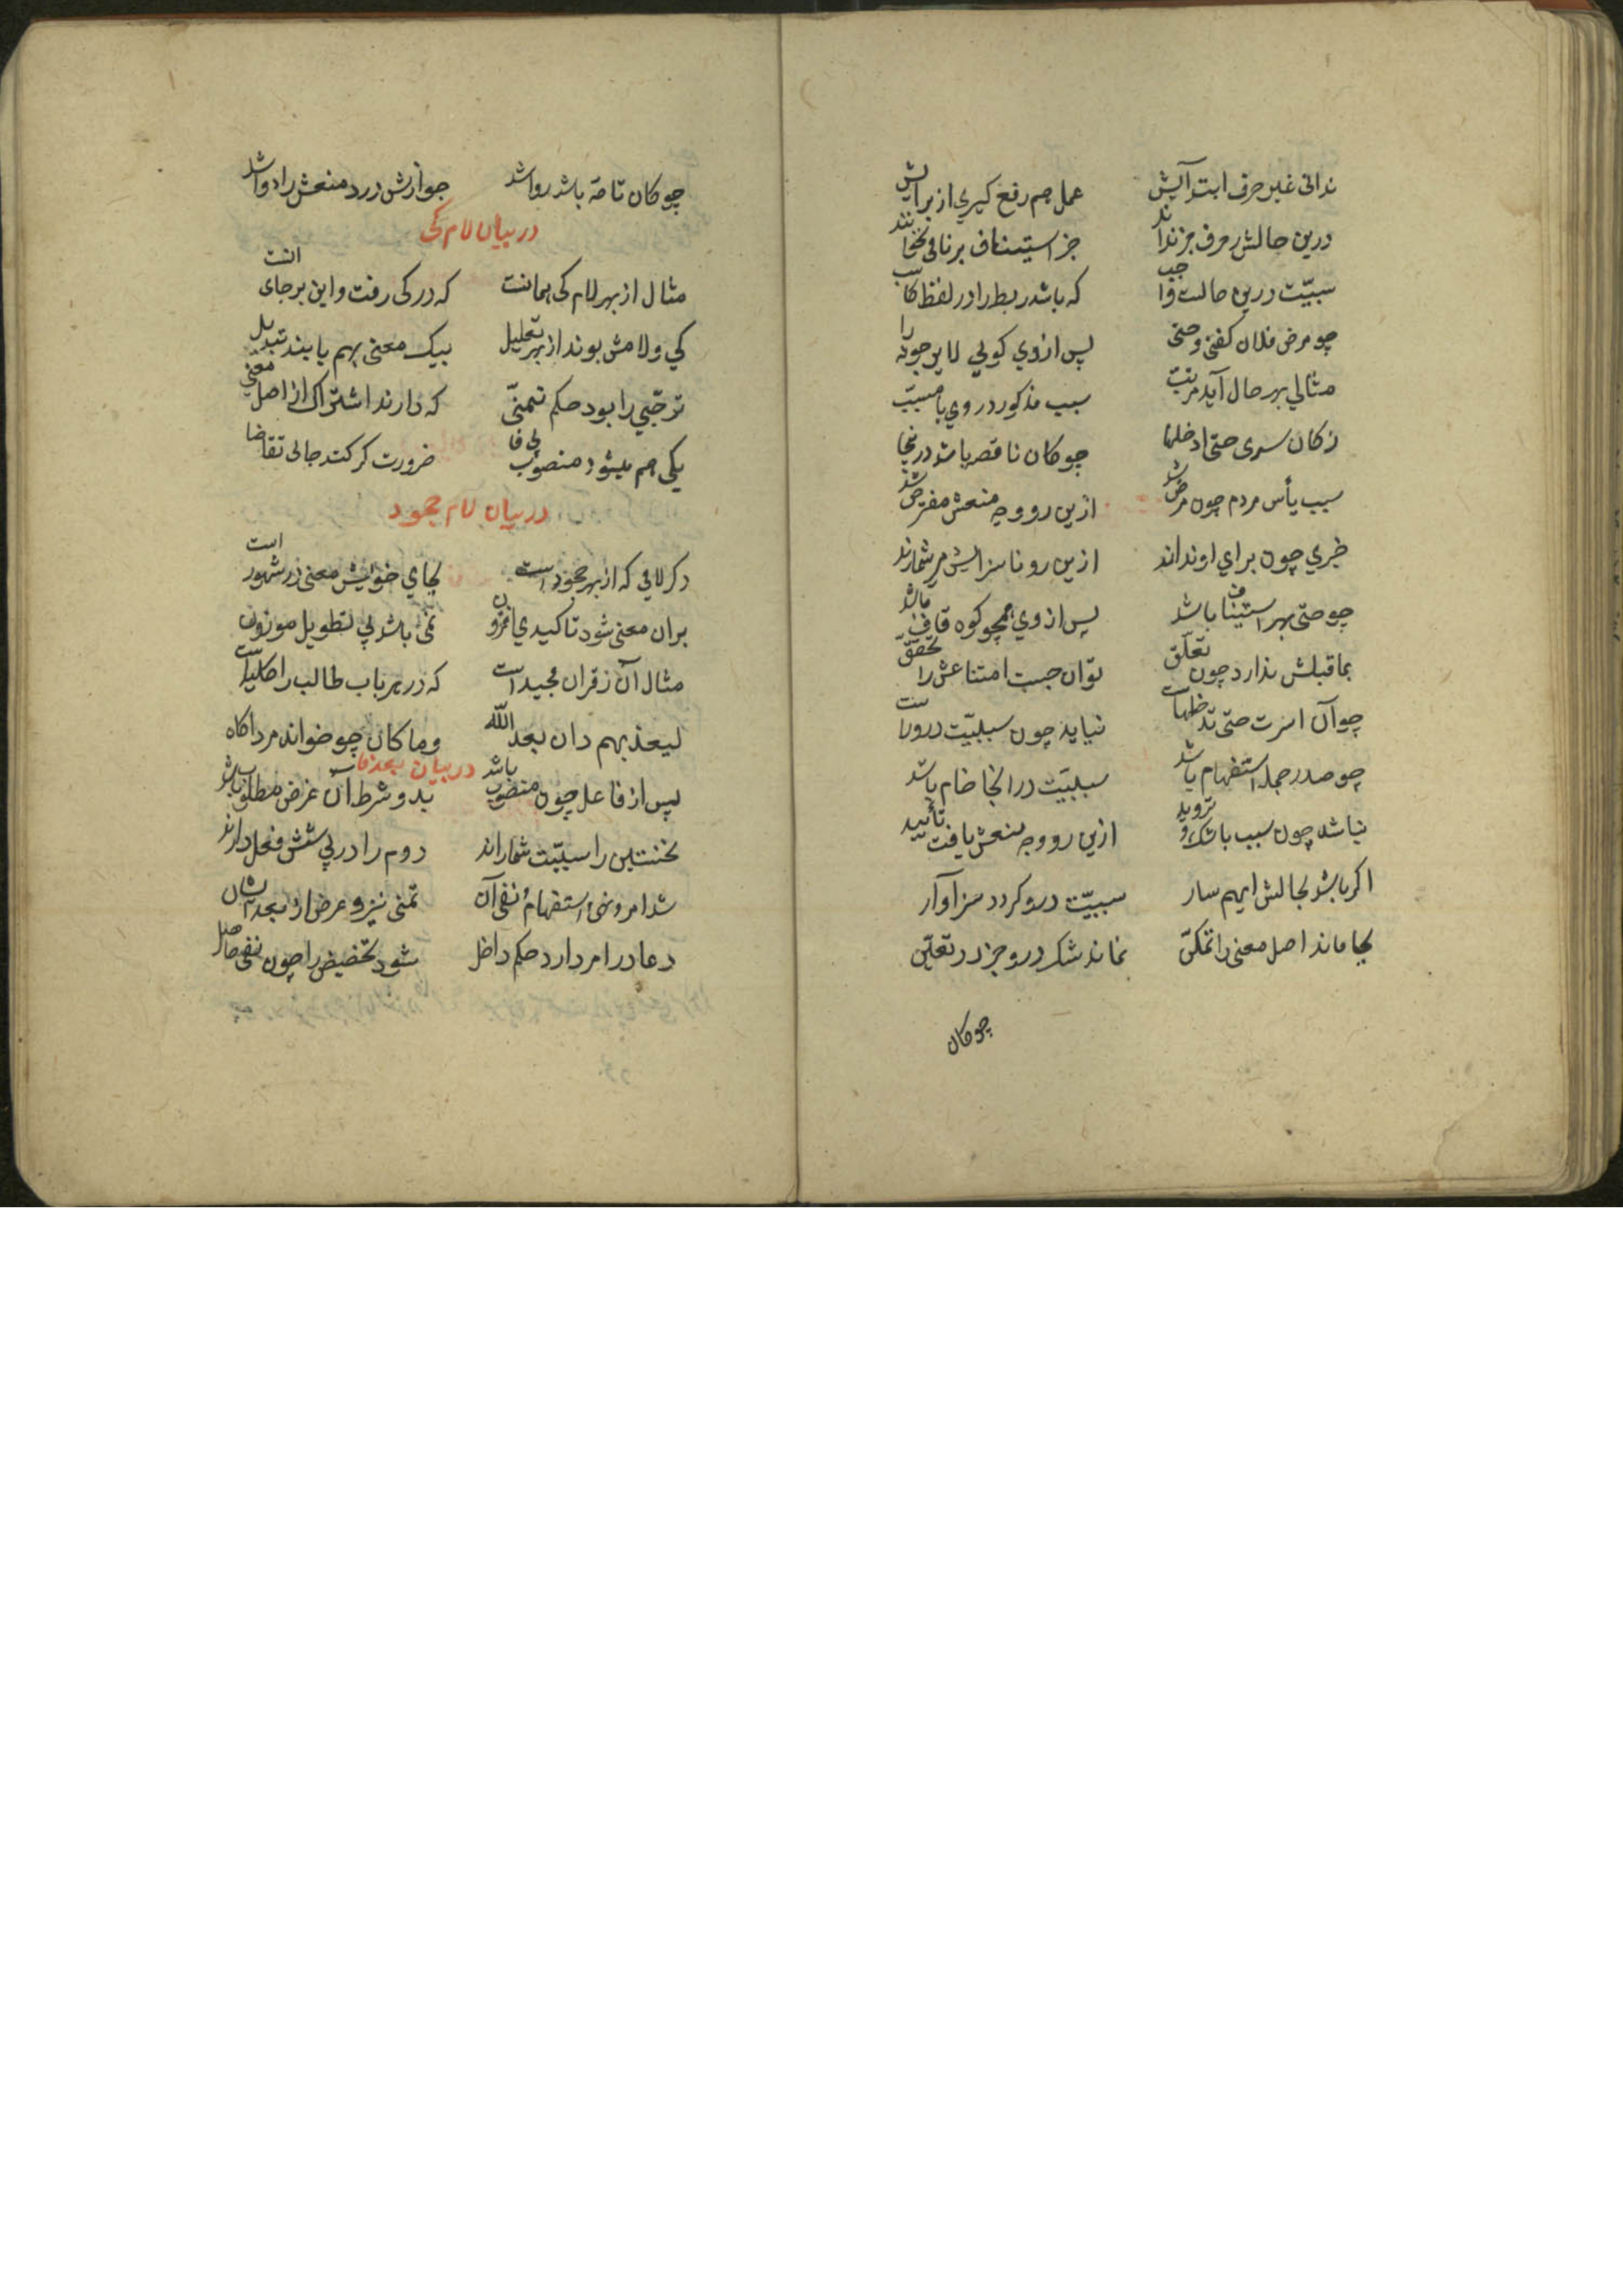 ندانی غیر حرف ابتدآیش عمل هم رفع کیری از برایش
درین حالش حرف جر ندانند جز استیناف برنافی نخوانند
سببیّت درین حالت واجب که باشد ربط را در لفظ کاسب
چو مرض فلان کفتی و حتی پس ازوی کویی لا یرجونه را
مثالی بهر حال آید مرتبت سبب مذکور در وی با مسبب
ز کان سیری حتی ادخلها چو کان ناقصه باشد درینجا
سبب یأس مردم چون مرض شد ازین رو وجه منعش مفترض شد
خبری چون برای او ندارند ازین رو ناسزایش می شمارند
چو حتی بهر استیناف باشد پس ازوی همچو کوه قاف باشد
بما قبلش ندارد چون تعلّق توان جست امتناعش را تحقّق
چو آن اسرت حتّی تدخلهاست نیاید چون سببیّت درو راست
چو صدر جمله استفهام باشد سببیّت در انجا خام باشد
نباشد چون سبب با شک و تردید ازین رو وجه منعش یافت تأیید
اکر باشد بحالش ایهم سار سببیّت درو کردد سزاوار
بجا ماند اصل معنی را تمکّن نماند شک درو جز در تعیّن
چو کان
چو کان تامّه باشد روا شد جوازش درد منعش را دوا شد
در بیان لام کی
مثال از بهر لام کی همانست که در کی رفت و این بر جای آنست
کی و لامش بوند از بهر تعلیل بیک معنی بهم یابند تبدیل
ترجّی را بود حکم تمنّی که دارند اشتراک از اصل معنی
یکی هم میشود منصوب بی فا ضرورت کر کند جایی تقاضا
در بیان لام جحود
دکر لامی که از بهر جحود است بجای خویش معنی در شهود است
بران معنی شود تاکیدی افزون نمی باشد پی تطویل موزون
مثال آن ز قران مجید است که در هر باب طالب را کلید است
لیعذبهم دان بعد اللّه وما کان چو خواند مرد اکاه
در بیان بعد فا
پس از فا فعل چون منصوب باشد بدو شرط آن غرض مطلوب باشد
نخستین را سببیّت شماراند دوم را در پی شش فعل دارند
شد امر و نهی و استفهام و نفی آن تمنی نیز و عرض از بعد آنشان
دعا در امر دارد حکم داخل شود تخضیض را چون نفی حاصل